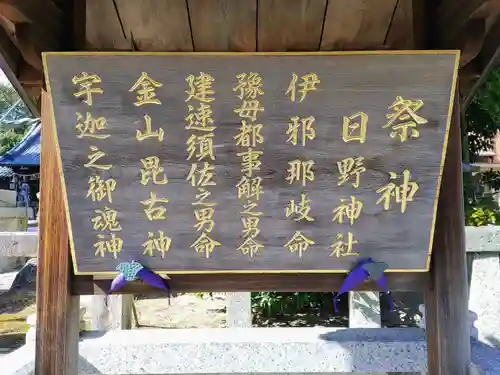 祭神
日野神社
伊邪那岐命
豫母都事解之男命
建速須佐之男命
金山毘古神
宇迦之御魂神